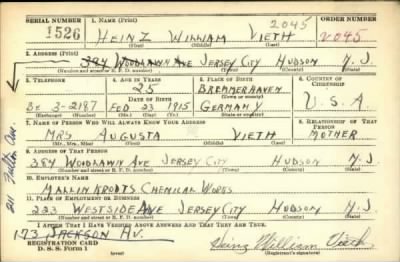 SERIAL NUMBER 1. NAME (Print) 2045 ORDER NUMBER
1526 HEINZ WILLIAM VIETH 2045
(First) (Middle) (Last)
2. ADDRESS (Print)
384 WOODLAWN AVE JERSEY CITY HUDSON N.J.
(Number and street or R. F. D. number) (Town) (County) (State)
3. TELEPHONE 4. AGE IN YEARS 5. PLACE OF BIRTH 6. COUNTRY OF CITIZENSHIP
25 BREMMERHAVEN
DATE OF BIRTH
BE 3-2187 FEB 23 1915 GERMANY U.S.A.
7. NAME OF PERSON WHO WILL ALWAYS KNOW YOUR ADDRESS 8. RELATIONSHIP OF THAT PERSON
MRS AUGUSTA VIETH MOTHER
(Mr., Mrs., Miss) (First) (Middle) (Last)
9. ADDRESS OF THAT PERSON
384 WOODLAWN AVE JERSEY CITY HUDSON N.J.
(Number and street or R. F. D. number) (Town) (County) (State)
10. EMPLOYER'S NAME
MALLINKRODTS CHEMICAL WORKS
11. PLACE OF EMPLOYMENT OR BUSINESS
223 WESTSIDE AVE JERSEY CITY HUDSON N.J.
(Number and street or R. F. D. number) (Town) (County) (State)
I AFFIRM THAT I HAVE VERIFIED ABOVE ANSWERS AND THAT THEY ARE TRUE.
173 JACKSON AV.
REGISTRATION CARD
D. S. S. Form 1
Heinz William Vieth
(Registrant's signature)
211 Fulton Ave